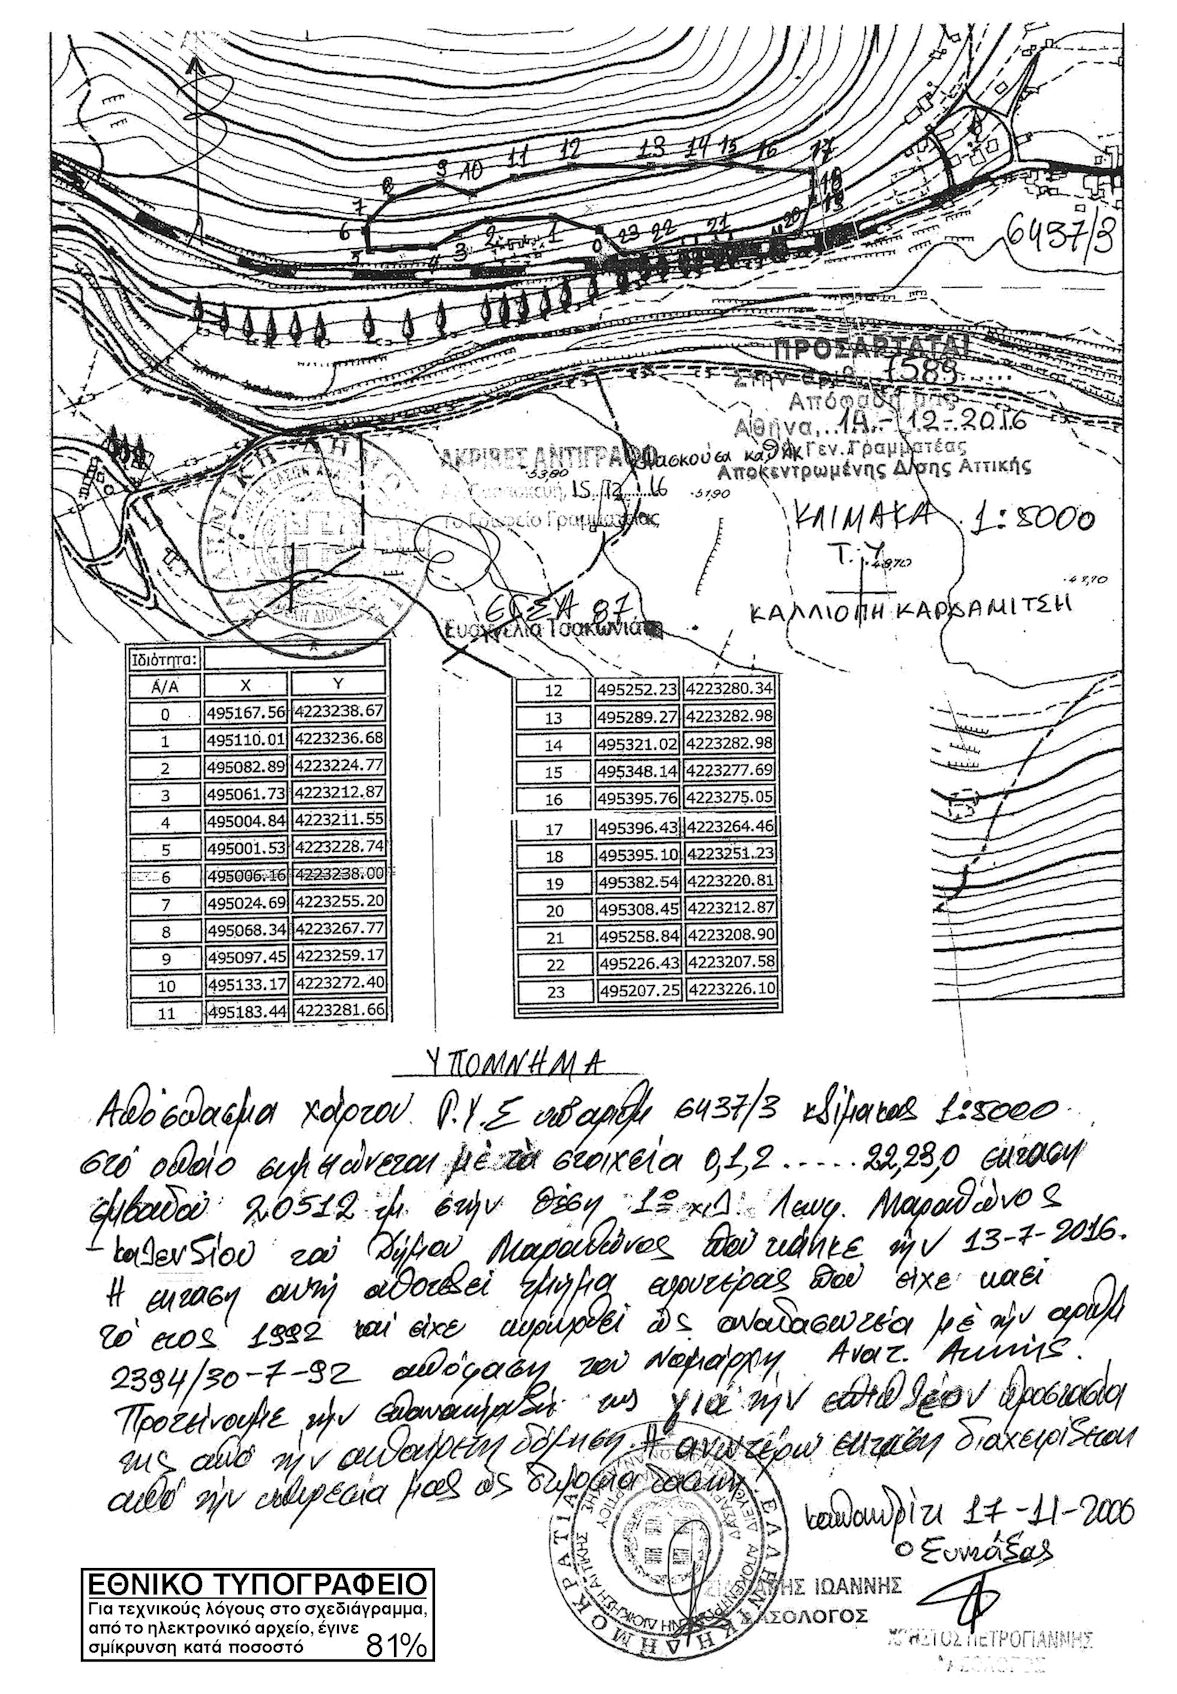 9 10 11 12 13 14 15 16 17
8
7
6
5 4 3 2 1 0 23 22 21 20 19 18
6437/3
ΠΡΟΣΑΡΤΑΤΑΙ
Στην αριθ. 7589......
Απόφαση μας
Αθήνα,..1Α.-12-2016
Ασκούσα καθ/κ Γεν. Γραμματέας
Αποκεντρωμένης Δ/σης Αττικής
ΑΚΡΙΒΕΣ ΑΝΤΙΓΡΑΦΟ
15.12....16
Το Γραφείο Γραμματείας
Ευαγγελία Τσακωνιάτη
ΕΓΣΑ 87
53,90
51,90
48,70
ΚΛΙΜΑΚΑ 1:5000
Τ.Υ.
ΚΑΛΛΙΟΠΗ ΚΑΡΔΑΜΙΤΣΗ
Ιδιότητα:
Α/Α X Y
0 495167.56 4223238.67
1 495110.01 4223236.68
2 495082.89 4223224.77
3 495061.73 4223212.87
4 495004.84 4223211.55
5 495001.53 4223228.74
6 495006.16 4223238.00
7 495024.69 4223255.20
8 495068.34 4223267.77
9 495097.45 4223259.17
10 495133.17 4223272.40
11 495183.44 4223281.66
12 495252.23 4223280.34
13 495289.27 4223282.98
14 495321.02 4223282.98
15 495348.14 4223277.69
16 495395.76 4223275.05
17 495396.43 4223264.46
18 495395.10 4223251.23
19 495382.54 4223220.81
20 495308.45 4223212.87
21 495258.84 4223208.90
22 495226.43 4223207.58
23 495207.25 4223226.10
ΥΠΟΜΝΗΜΑ
Απόσπασμα χάρτου Γ.Υ.Σ υπ αριθμ 6437/3 κλίμακας 1:5000
στό οποίο σημειώνεται με τα στοιχεία 0,1,2.....22,23,0 έκταση
εμβαδού 2.0512 στην θέση 1ο χιλ. Λεωφ. Μαραθώνος
-Καλεντζίου του Δήμου Μαραθώνος που κάηκε την 13-7-2016.
Η έκταση αυτή αποτελεί τμήμα ευρυτέρας που είχε καεί
τό έτος 1992 και είχε κηρυχθεί ως αναδασωτέα με την αριθμ
2394/30-7-92 απόφαση του Νομάρχη Ανατ. Αττικής.
Προτείνουμε την επανακήρυξή της για την επιπλέον προστασία
της από την αυθαίρετη δόμηση. Η ανωτέρω έκταση διαχειρίζεται
από την υπηρεσία μας ως δημόσια δασική.
Καπανδρίτι 17-11-2006
Ο Συντάξας
ΙΩΑΝΝΗΣ
ΔΑΣΟΛΟΓΟΣ
ΧΡΗΣΤΟΣ ΠΕΤΡΟΓΙΑΝΝΗΣ
ΔΑΣΟΛΟΓΟΣ
ΕΛΛΗΝΙΚΗ ΔΗΜΟΚΡΑΤΙΑ
ΕΘΝΙΚΟ ΤΥΠΟΓΡΑΦΕΙΟ
Για τεχνικούς λόγους στο σχεδιάγραμμα,
από το ηλεκτρονικό αρχείο, έγινε
σμίκρυνση κατά ποσοστό 81%